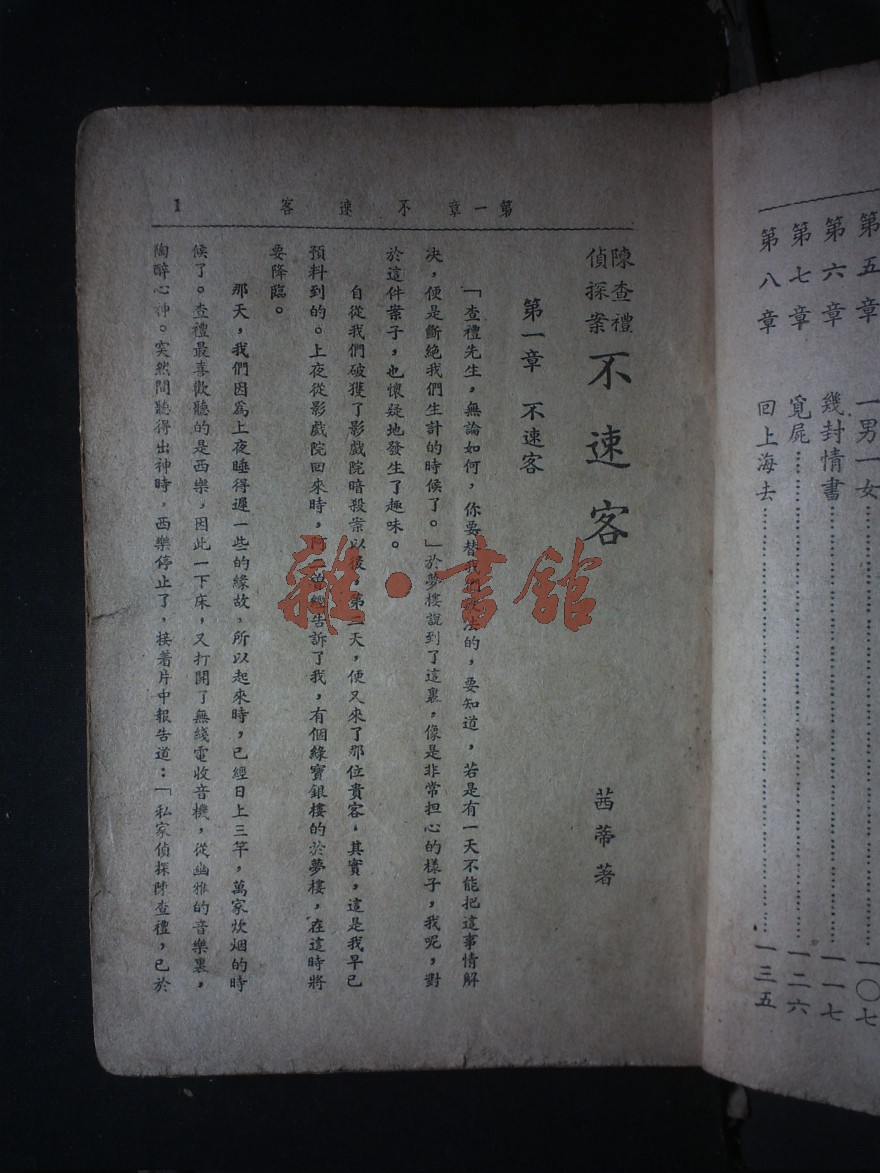 第五章 一男一女……一〇七
第六章 幾封情書……一一七
第七章 覓屍……一二六
第八章 回上海去……一三五
第一章 不速客 1
陳查禮偵探案 不速客 茜蒂著
第一章 不速客
「查禮先生，無論如何，你要替我 法的，要知道，若是有一天不能把這事情解
決，便是斷絕我們生計的時候了。」於夢樓說到了這裏，像是非常担心的樣子，我呢，對
於這件案子，也懷疑地發生了趣味。
自從我們破獲了影戲院暗殺案以後，第二天，便又來了那位貴客，其實，這是我早已
預料到的。上夜從影戲院回來時， 曾經告訴了我，有個綠寶銀樓的於夢樓，在這時將
要降臨。
那天，我們因爲上夜睡得遲一些的緣故，所以起來時，已經日上三竿，萬家炊烟的時
候了。查禮最喜歡聽的是西樂，因此一下床，又打開了無綫電收音機，從幽雅的音樂裏，
陶醉心神。突然間聽得出神時，西樂停止了，接着片中報告道：「私家偵探陳查禮，已於
雜·書館